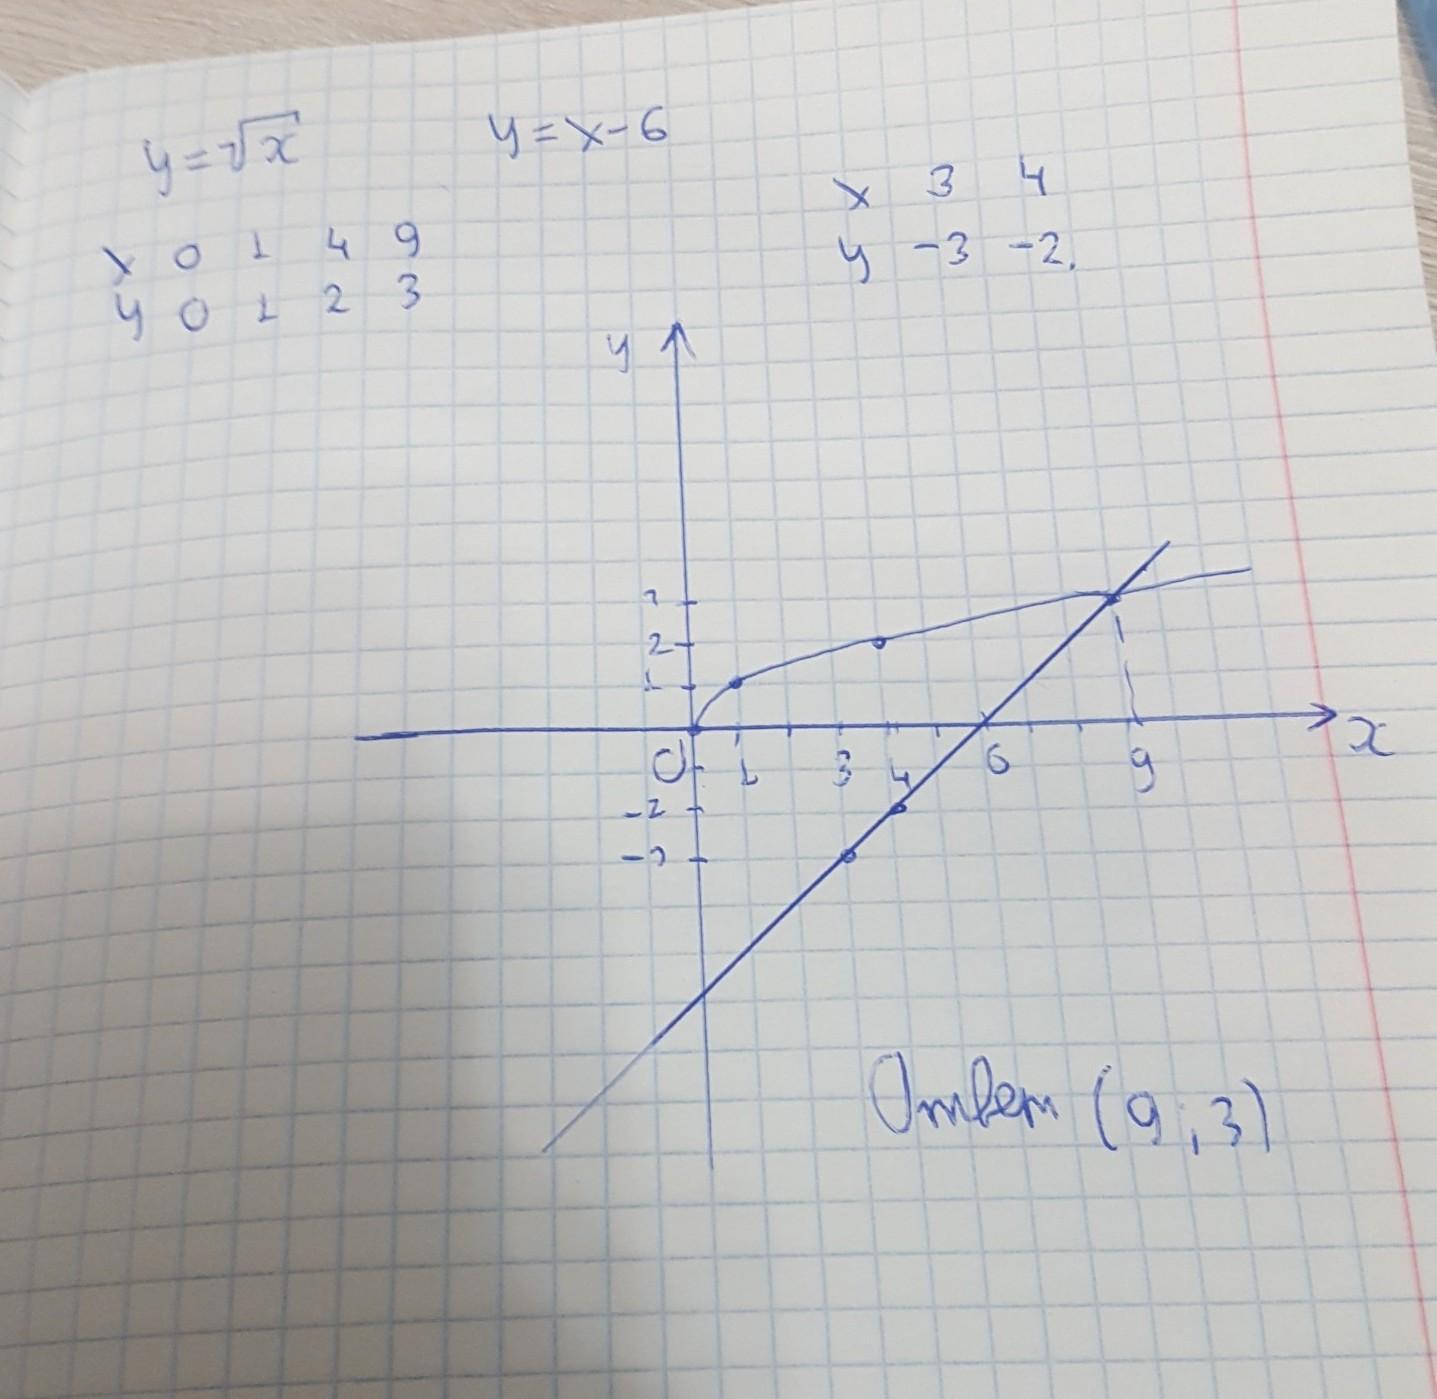 y=√x y=x-6
x 3 4
y -3 -2.
x 0 1 4 9
y 0 1 2 3
y
3
2
1
0 1 3 4 6 9 x
-2
-3
Ответ (9;3)